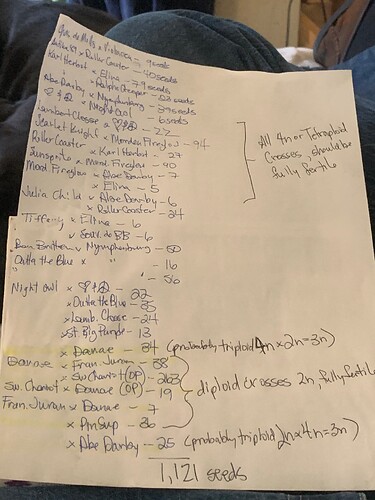 Jus de Mills x Nishiki - 9 seeds
Author K9 x Roller Coaster - 40 seeds
Karl Herbst x Elina - 79 seeds
" x Ralph's Creeper - 103 seeds
Abe Darby x Nymphenburg - 39 seeds
x Night Owl - 6 seeds
Lambert Closse x - 22
Scarlet Knight x Mordens Fireglow - 94
Roller Coaster x Karl Herbst - 27
Sunsprite x Mord. Fireglow - 90
Mord. Fireglow x Abe Darby - 7
x Elina - 5
Julia Child x Abe Darby - 6
x Roller Coaster - 24
Tiffany x Elina - 6
x Souv. de BB - 6
Ben Britten x Nymphenburg - 50
Outta the Blue x " - 16
- 56
Night Owl x - 22
x Outta the Blue - 35
x Lamb. Closse - 24
x St. Big Purple - 13
x Danae - 34 (probably triploid 4n x 2n = 3n)
Danae x Fran. Juran - 38
x Sw. Chariot (OP) - 263
Sw. Chariot x Danae (OP) - 19
Fran. Juran x Danae - 7
x PmSup - 36
x Abe Darby - 25 (probably triploid 2n x 4n = 3n)
1,121 seeds
All 4n or Tetraploid
Crosses, should be
fully fertile
diploid crosses 2n, fully fertile